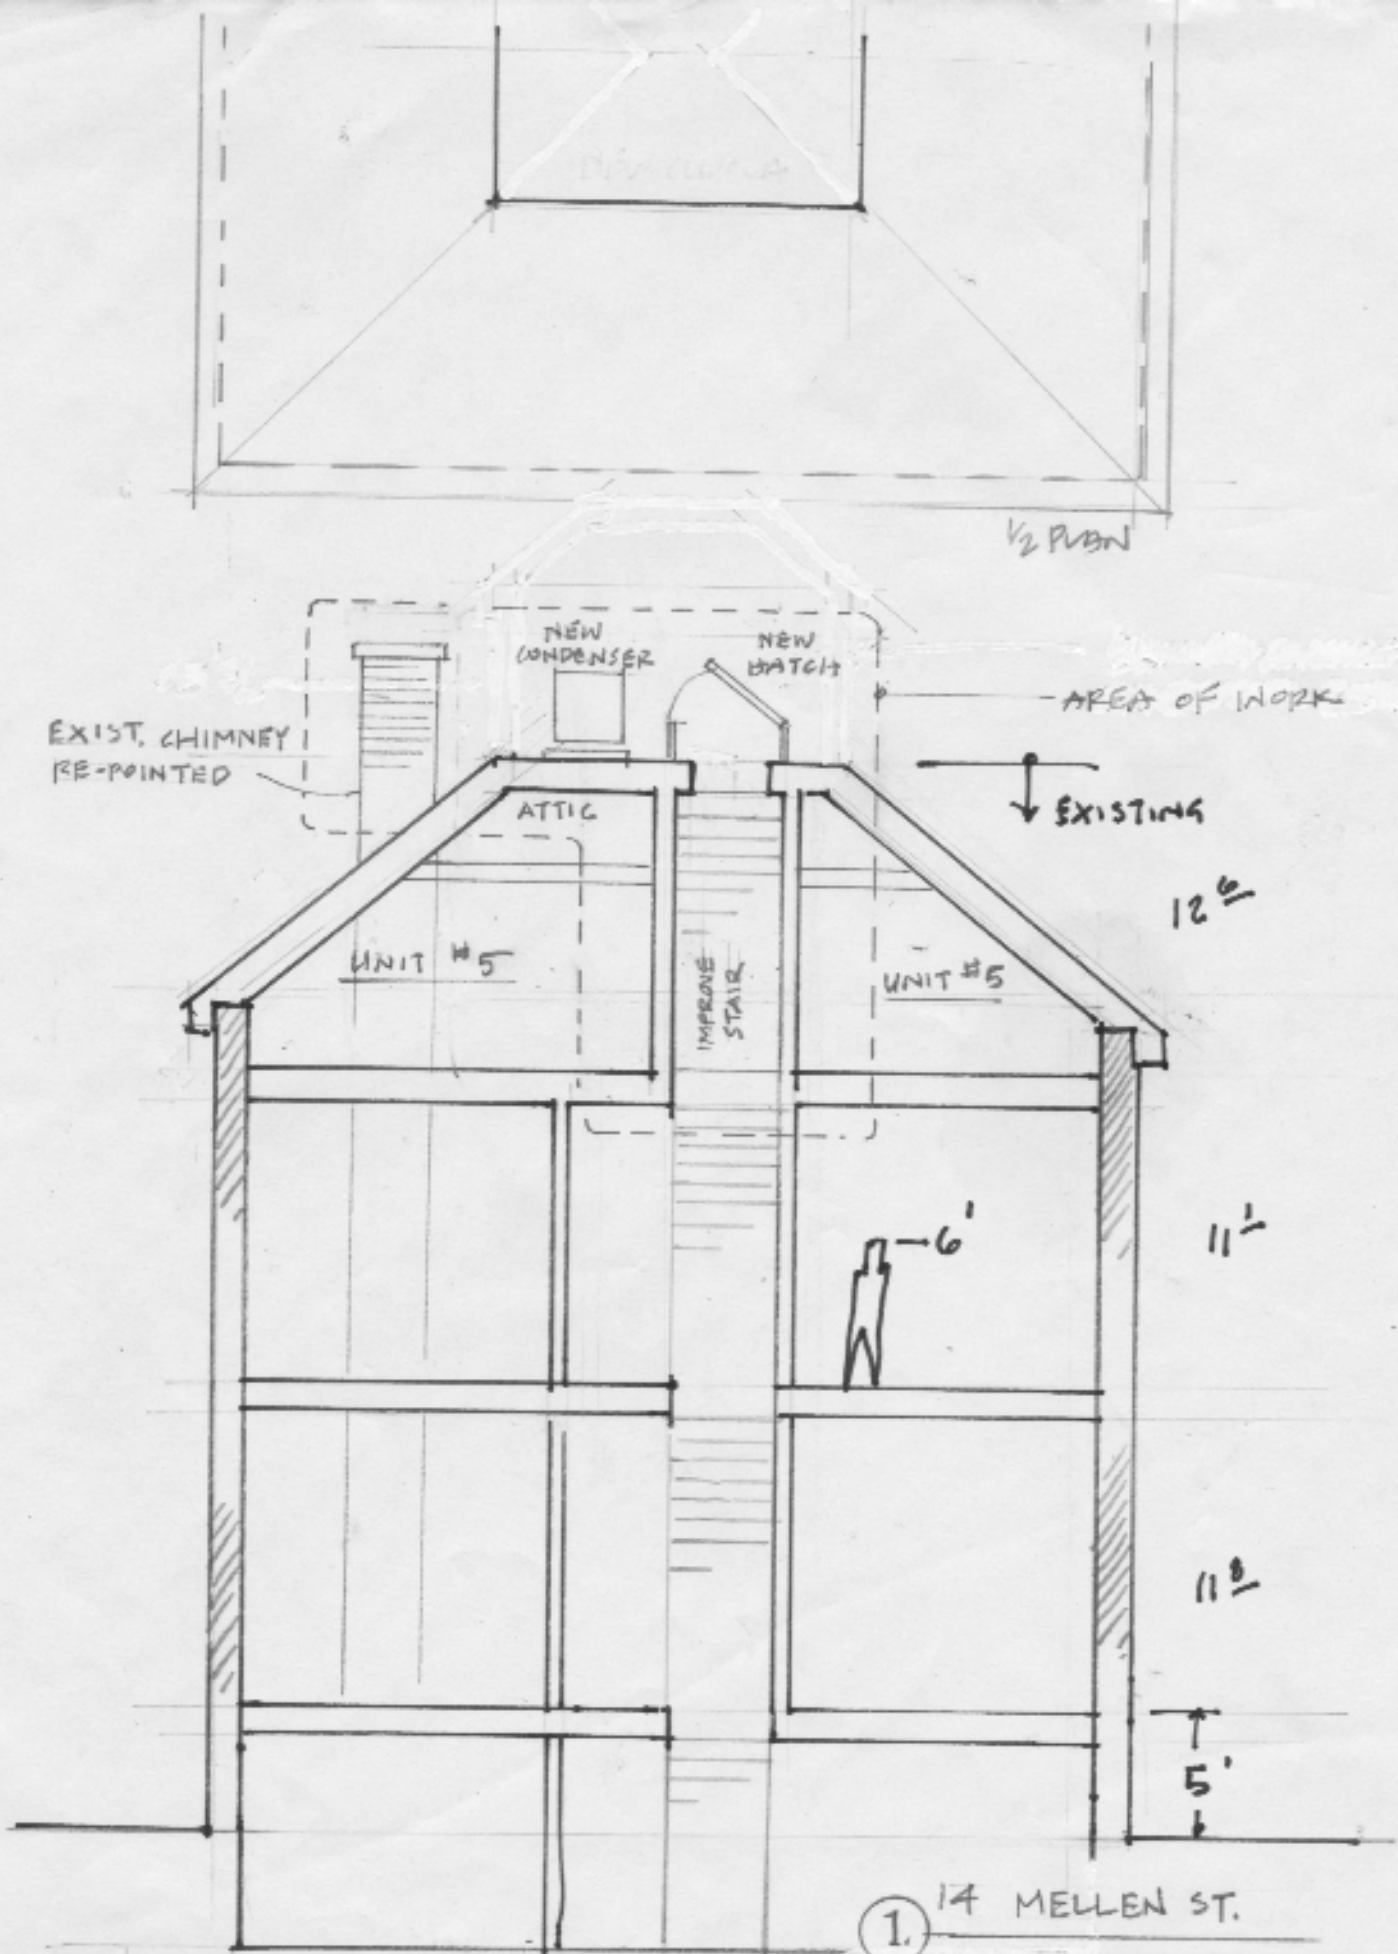 1/2 PLAN
NEW
CONDENSER
NEW
HATCH
AREA OF WORK
EXIST. CHIMNEY
RE-POINTED
EXISTING
ATTIC
12 6
UNIT #5
UNIT #5
IMPROVE
STAIR
6'
11 1
11 8
5'
1. 14 MELLEN ST.